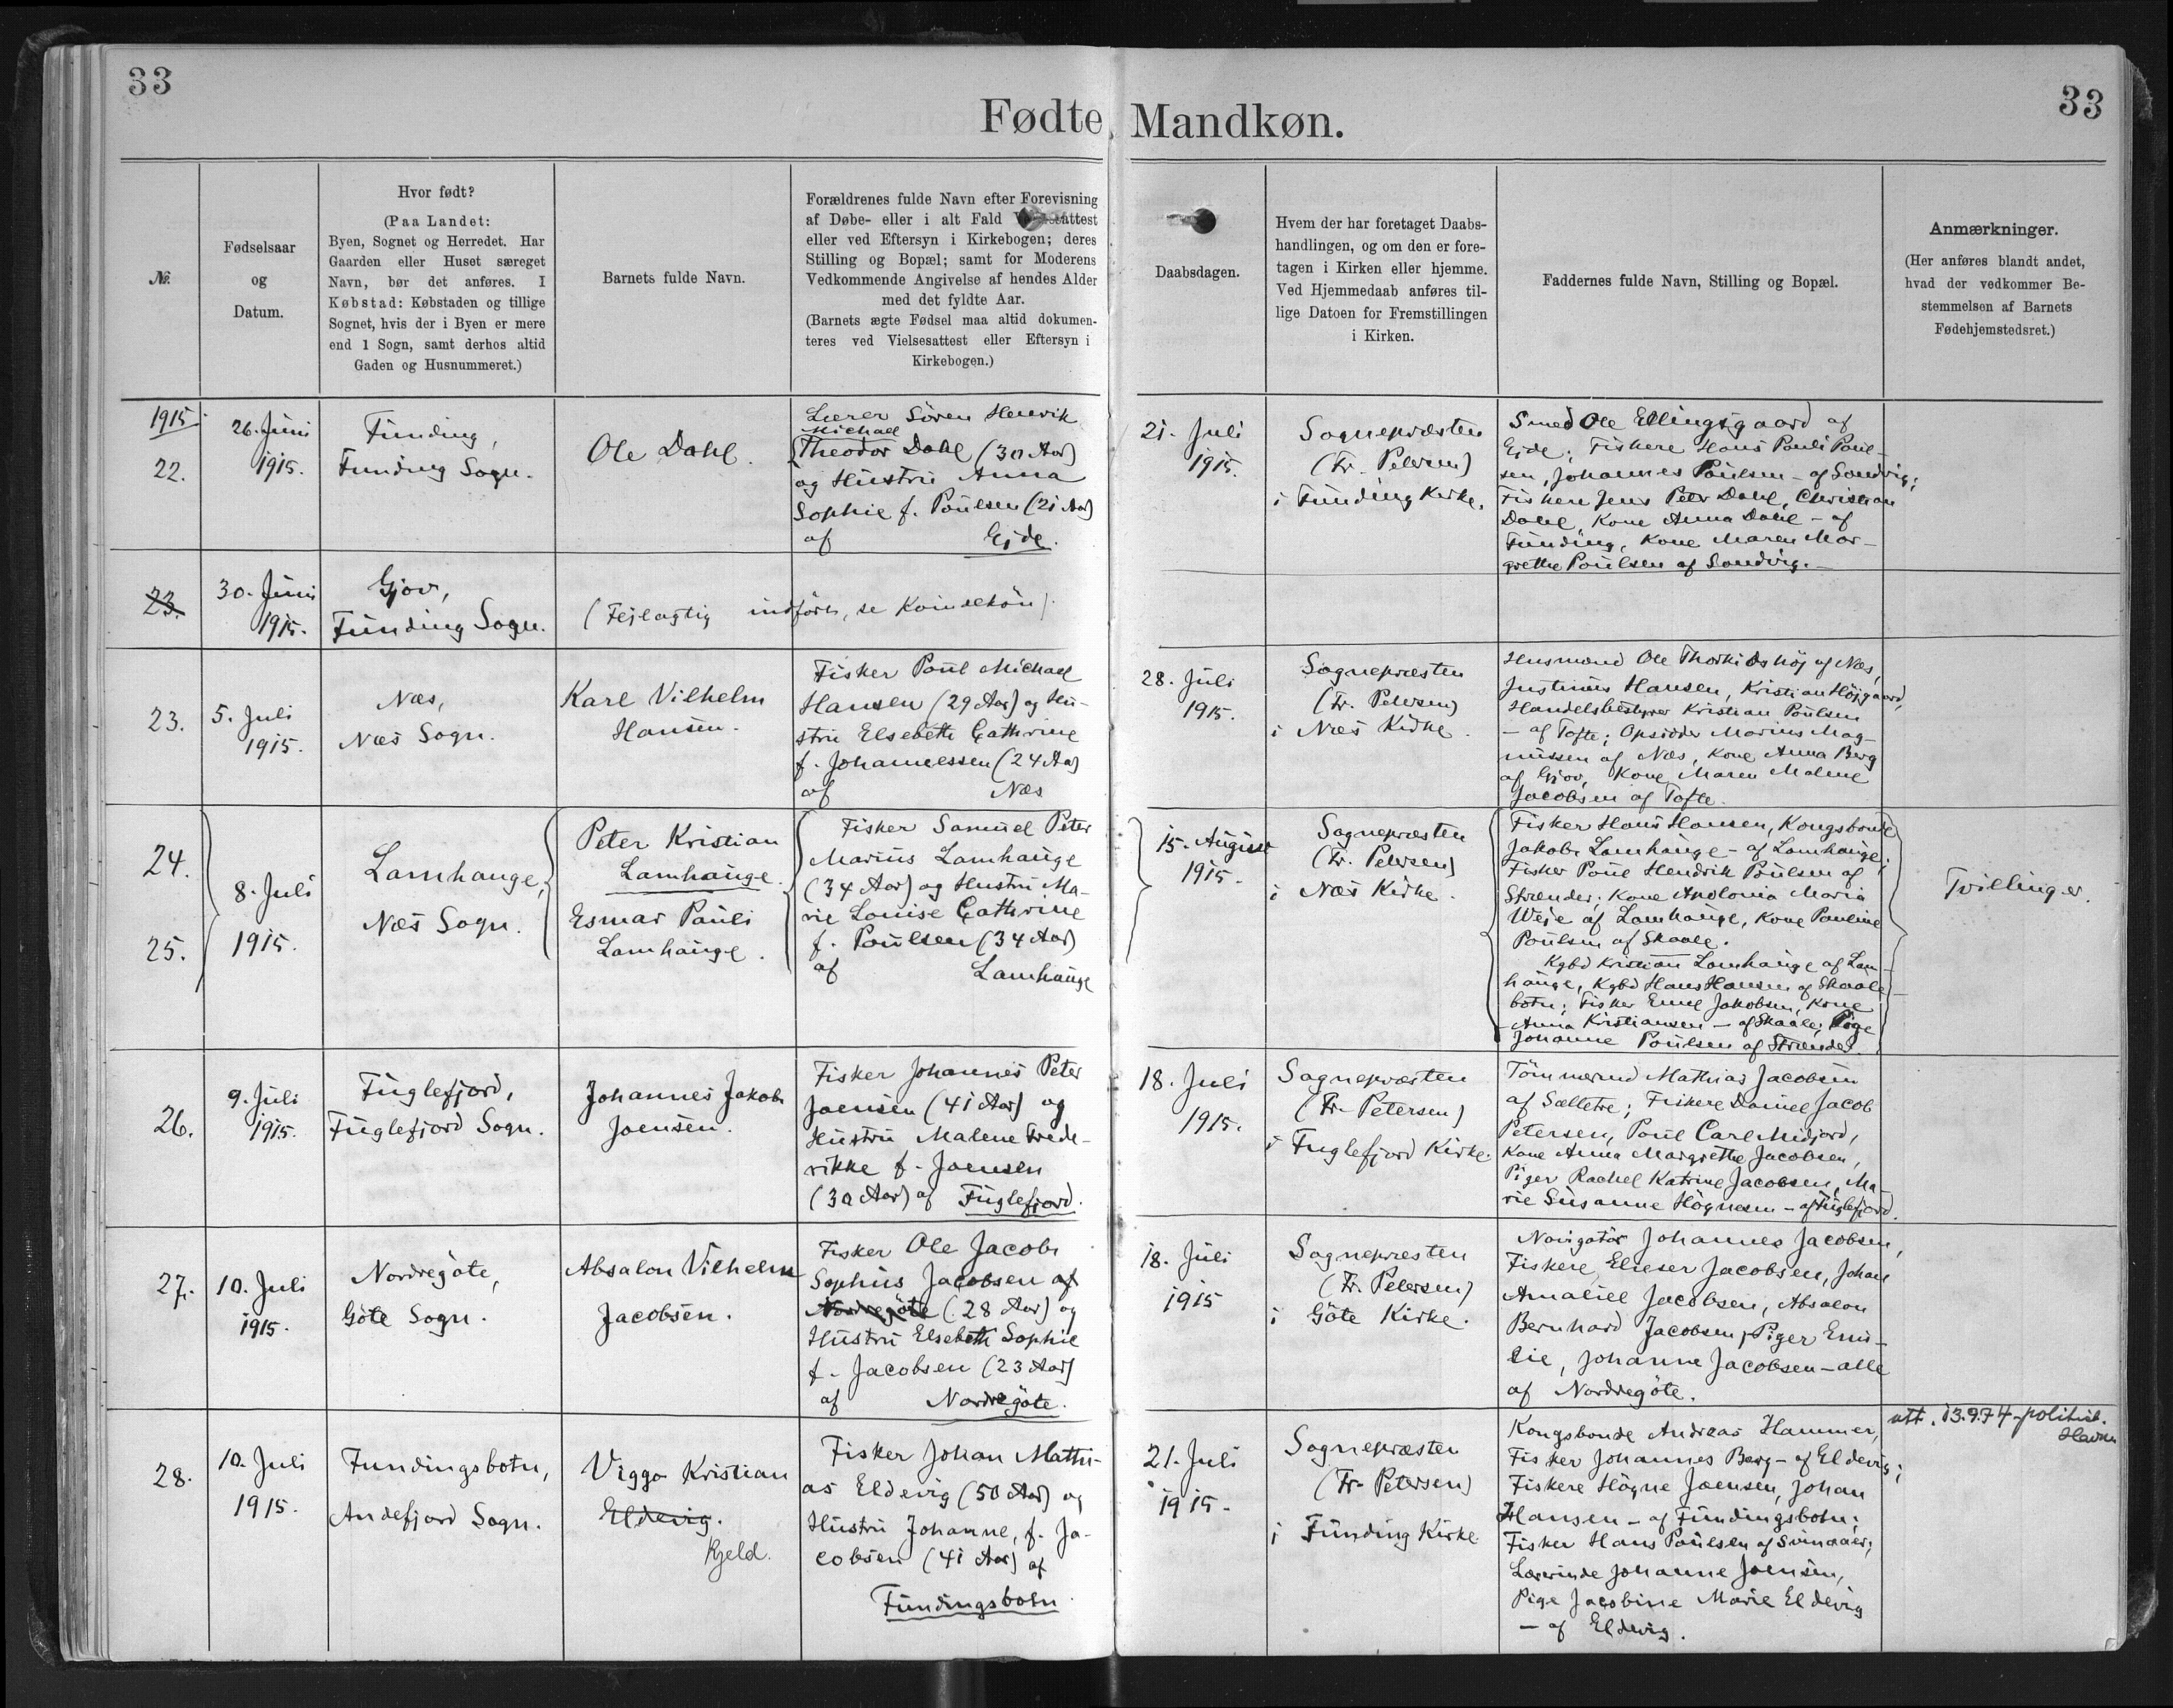 33
33
Fødte Mandkøn.
№.
Fødselsaar
og
Datum.
Hvor født?
(Paa Landet:
Byen, Sognet og Herredet. Har
Gaarden eller Huset særeget
Navn, bør det anføres. I
Købstad: Købstaden og tillige
Sognet, hvis der i Byen er mere
end 1 Sogn, samt derhos altid
Gaden og Husnummeret.)
Barnets fulde Navn.
Forældrenes fulde Navn efter Forevisning
af Døbe- eller i alt Fald
eller ved Eftersyn i Kirkebogen; deres
Stilling og Bopæl; samt for Moderens
Vedkommende Angivelse af hendes Alder
med det fyldte Aar.
(Barnets ægte Fødsel maa altid dokumen-
teres ved Vielsesattest eller Eftersyn i
Kirkebogen.)
Daabsdagen.
Hvem der har foretaget Daabs-
handlingen, og om den er fore-
tagen i Kirken eller hjemme.
Ved Hjemmedaab anføres til-
lige Datoen for Fremstillingen
i Kirken.
Faddernes fulde Navn, Stilling og Bopæl.
Anmærkninger.
(Her anføres blandt andet,
hvad der vedkommer Be-
stemmelsen af Barnets
Fødehjemstedsret.)
1915
22.
26. Juni
1915.
Funding,
Funding Sogn.
Ole Dahl.
Lærer Sören Henrik
Michael
Theodor Dahl (30 Aar)
og Hustru Anna
Sophie f. Poulsen (21 Aar)
af Ejde.
21. Juli
1915.
Sognepræsten
(Fr. Petersen)
i Funding Kirke.
Smed Ole Ellingsgaard af
Ejde; Fiskere Hans Pauli Poul-
sen, Johannes Poulsen - af Sandvig;
Fisker Jens Peter Dahl, Christian
Dahl, Kone Anna Dahl - af
Funding, Kone Maren Mar-
grethe Poulsen af Sandvig.
23.
30. Juni
1915.
Gjov,
Funding Sogn.
(Fejlagtig indført, se Kvindekön).
23.
5. Juli
1915.
Næs,
Næs Sogn.
Karl Vilhelm
Hansen.
Fisker Poul Michael
Hansen (29 Aar) og Hu-
stru Elsebeth Cathrine
f. Johannessen (24 Aar)
af Næs
28. Juli
1915.
Sognepræsten
(Fr. Petersen)
i Næs Kirke.
Husmand Ole Thorkildshöj af Næs,
Justinus Hansen, Kristian Höjgaard,
Handelsbestyrer Kristian Poulsen
- af Tofte; Opsidder Marius Mag-
nussen af Næs, Kone Anna Berg
af Gjov, Kone Maren Malene
Jacobsen af Tofte.
24.
25.
8. Juli
1915.
Lamhauge,
Næs Sogn.
Peter Kristian
Lamhauge.
Esmar Pauli
Lamhauge.
Fisker Samuel Peter
Marius Lamhauge
(34 Aar) og Hustru Ma-
rie Louise Cathrine
f. Poulsen (34 Aar)
af Lamhauge
15. August
1915.
Sognepræsten
(Fr. Petersen)
i Næs Kirke.
Fisker Hans Hansen, Kongsbonde
Jakob Lamhauge - af Lamhauge;
Fisker Poul Hendrik Poulsen af
Strænder; Kone Apolonia Maria
Weje af Lamhauge, Kone Pauline
Poulsen af Skaale.
Kgbd Kristian Lamhauge af Lam-
hauge, Kgbd Hans Hansen af Skaale-
botn; Fisker Emil Jakobsen, Kone
Anna Kristiansen - af Skaale; Pige
Johanne Poulsen af Strænder.
Tvillinger.
26.
9. Juli
1915.
Fuglefjord,
Fuglefjord Sogn.
Johannes Jakob
Joensen.
Fisker Johannes Peter
Joensen (41 Aar) og
Hustru Malene Frede-
rikke f. Joensen
(30 Aar) af Fuglefjord.
18. Juli
1915.
Sognepræsten
(Fr. Petersen)
i Fuglefjord Kirke.
Tömmermd Mathias Jacobsen
af Sælletre; Fiskere Daniel Jacob
Petersen, Poul Carl Midjord,
Kone Anna Margrethe Jacobsen,
Piger Rachel Katrine Jacobsen, Ma-
rie Susanne Högnesen - af Fuglefjord.
27.
10. Juli
1915.
Nordregöte,
Göte Sogn.
Absalon Vilhelm
Jacobsen.
Fisker Ole Jacob
Sophus Jacobsen af
Nordregöte (28 Aar) og
Hustru Elsebeth Sophie
f. Jacobsen (23 Aar)
af Nordregöte.
18. Juli
1915
Sognepræsten
(Fr. Petersen)
i Göte Kirke.
Navigatör Johannes Jacobsen,
Fiskere Elieser Jacobsen, Johan
Amaliel Jacobsen, Absalon
Bernhard Jacobsen, Piger Emi-
lie, Johanne Jacobsen - alle
af Nordregöte.
28.
10. Juli
1915.
Fundingsbotn,
Andefjord Sogn.
Viggo Kristian
Eldevig.
Kjeld.
Fisker Johan Mathi-
as Eldevig (50 Aar) og
Hustru Johanne, f. Ja-
cobsen (41 Aar) af
Fundingsbotn
21. Juli
1915.
Sognepræsten
(Fr. Petersen)
i Funding Kirke
Kongsbonde Andreas Hammer,
Fisker Johannes Berg - af Eldevig;
Fiskere Högne Joensen, Johan
Hansen - af Fundingsbotn;
Fisker Hans Poulsen af Svinaaer;
Lærerinde Johanne Joensen,
Pige Jacobine Marie Eldevig
- af Eldevig.
att. 13.9.74 politist.
Havn